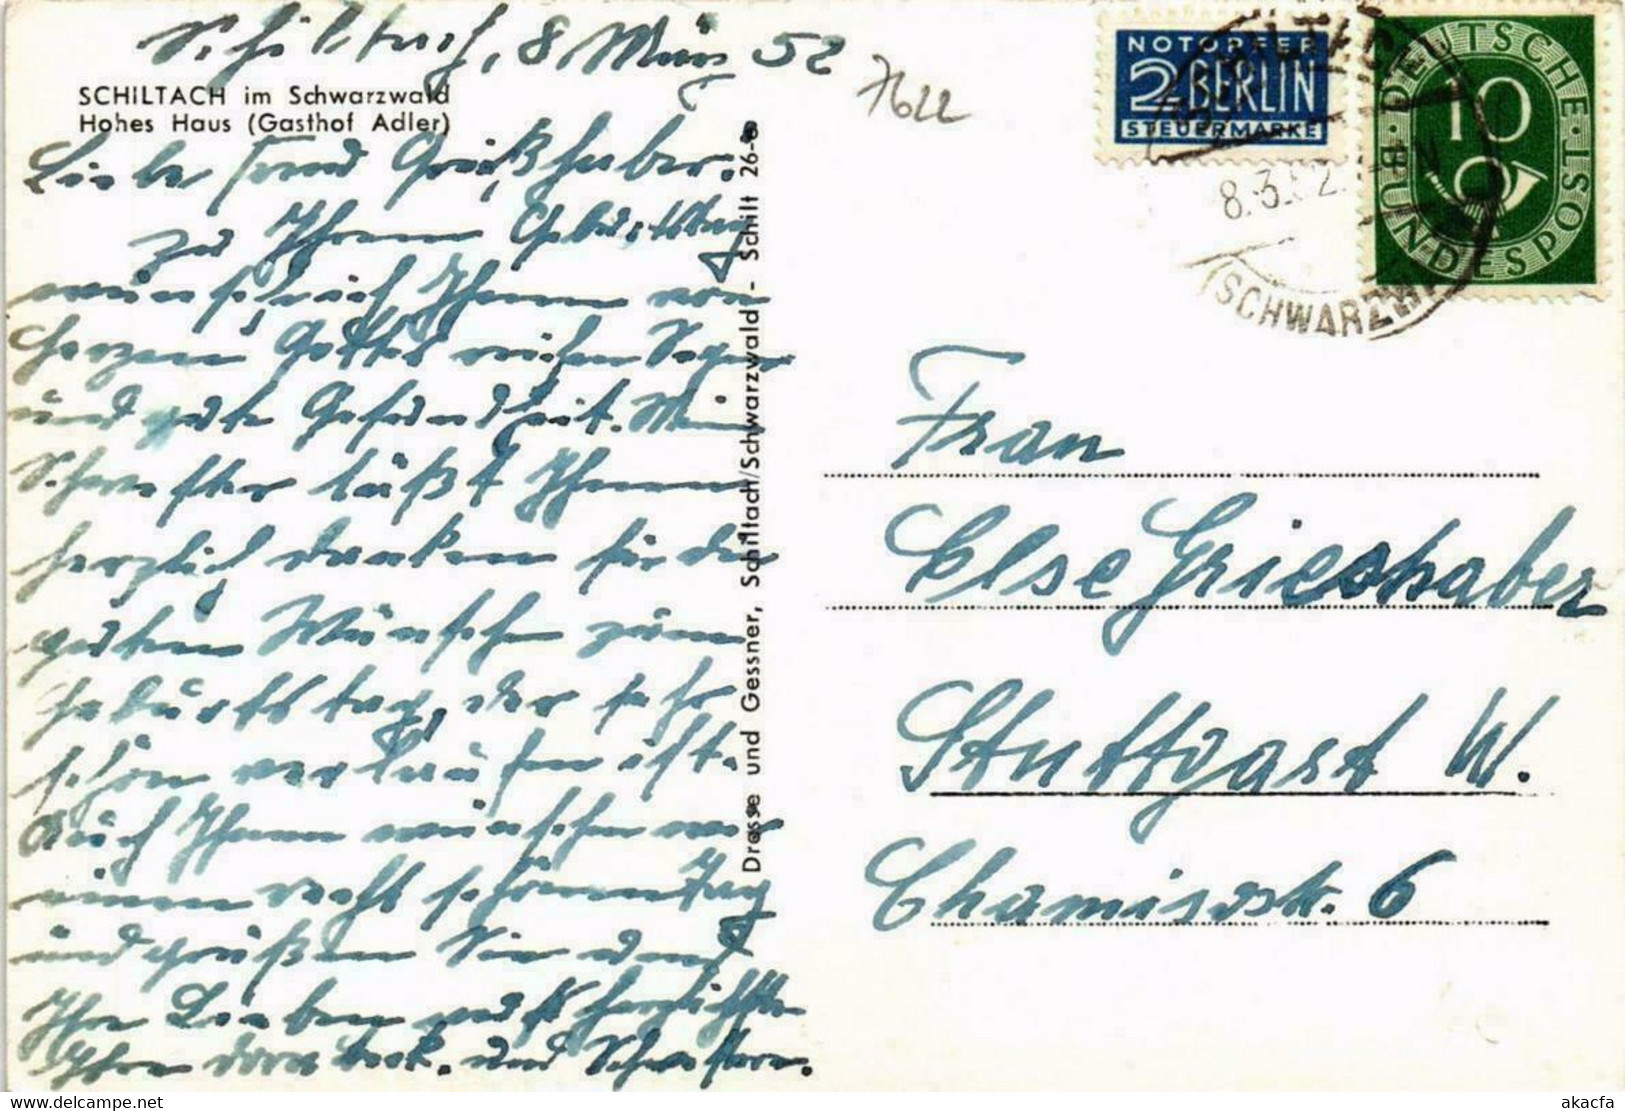 Schiltach, 8 März 52
SCHILTACH im Schwarzwald
Hohes Haus (Gasthof Adler)
7622
Liebe Frau Grießhaber.
Zu Ihrem Geburtstag
wünsche ich Ihnen von
Herzen Gottes reichen Segen
und gute Gesundheit. Meine
Schwester läßt Ihnen
herzlich danken für die
guten Wünsche zum
Geburtstag, der sehr
schön verlaufen ist.
Auch Ihnen wünschen wir
einen recht schönen Tag
und grüßen Sie und
Ihre Lieben aufs herzlichste
Ihre und Schwestern.
Drosse und Gessner, Schiltach/Schwarzwald - Schilt 26-
NOTOPFER
2 BERLIN
STEUERMARKE
DEUTSCHE BUNDESPOST
10
SCHILTACH
8.3.52
(SCHWARZW
Frau
Else Grieshaber
Stuttgart W.
Chamissostr. 6
akpool.co.uk
akacfa